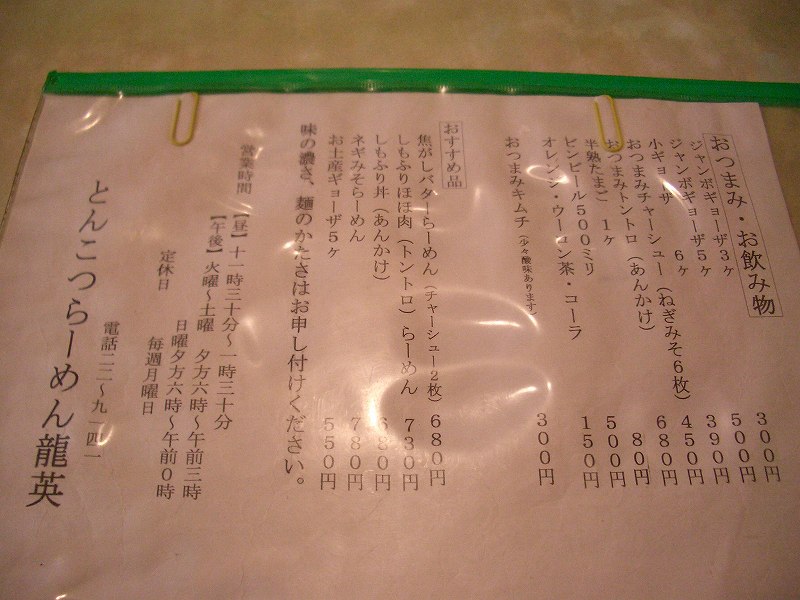 おつまみ・お飲み物
ジャンボギョーザ3ヶ 300円
ジャンボギョーザ5ヶ 500円
小ギョーザ 6ヶ 390円
おつまみチャーシュー(ねぎみそ6枚) 450円
おつまみトントロ(あんかけ) 680円
半熟たまご 1ヶ 80円
ビンビール500ミリ 500円
オレンジ・ウーロン茶・コーラ 150円
おつまみキムチ(少々酸味あります) 300円
おすすめ品
焦がしバターらーめん(チャーシュー2枚) 680円
しもふりほほ肉(トントロ)らーめん 730円
しもふり丼(あんかけ) 680円
ネギみそらーめん 780円
お土産ギョーザ5ヶ 550円
味の濃さ、麺のかたさはお申し付けください。
営業時間 【昼】十一時三十分～一時三十分
【午後】火曜～土曜 夕方六時～午前三時
日曜夕方六時～午前0時
定休日 毎週月曜日
電話二二～九一四一
とんこつらーめん龍英